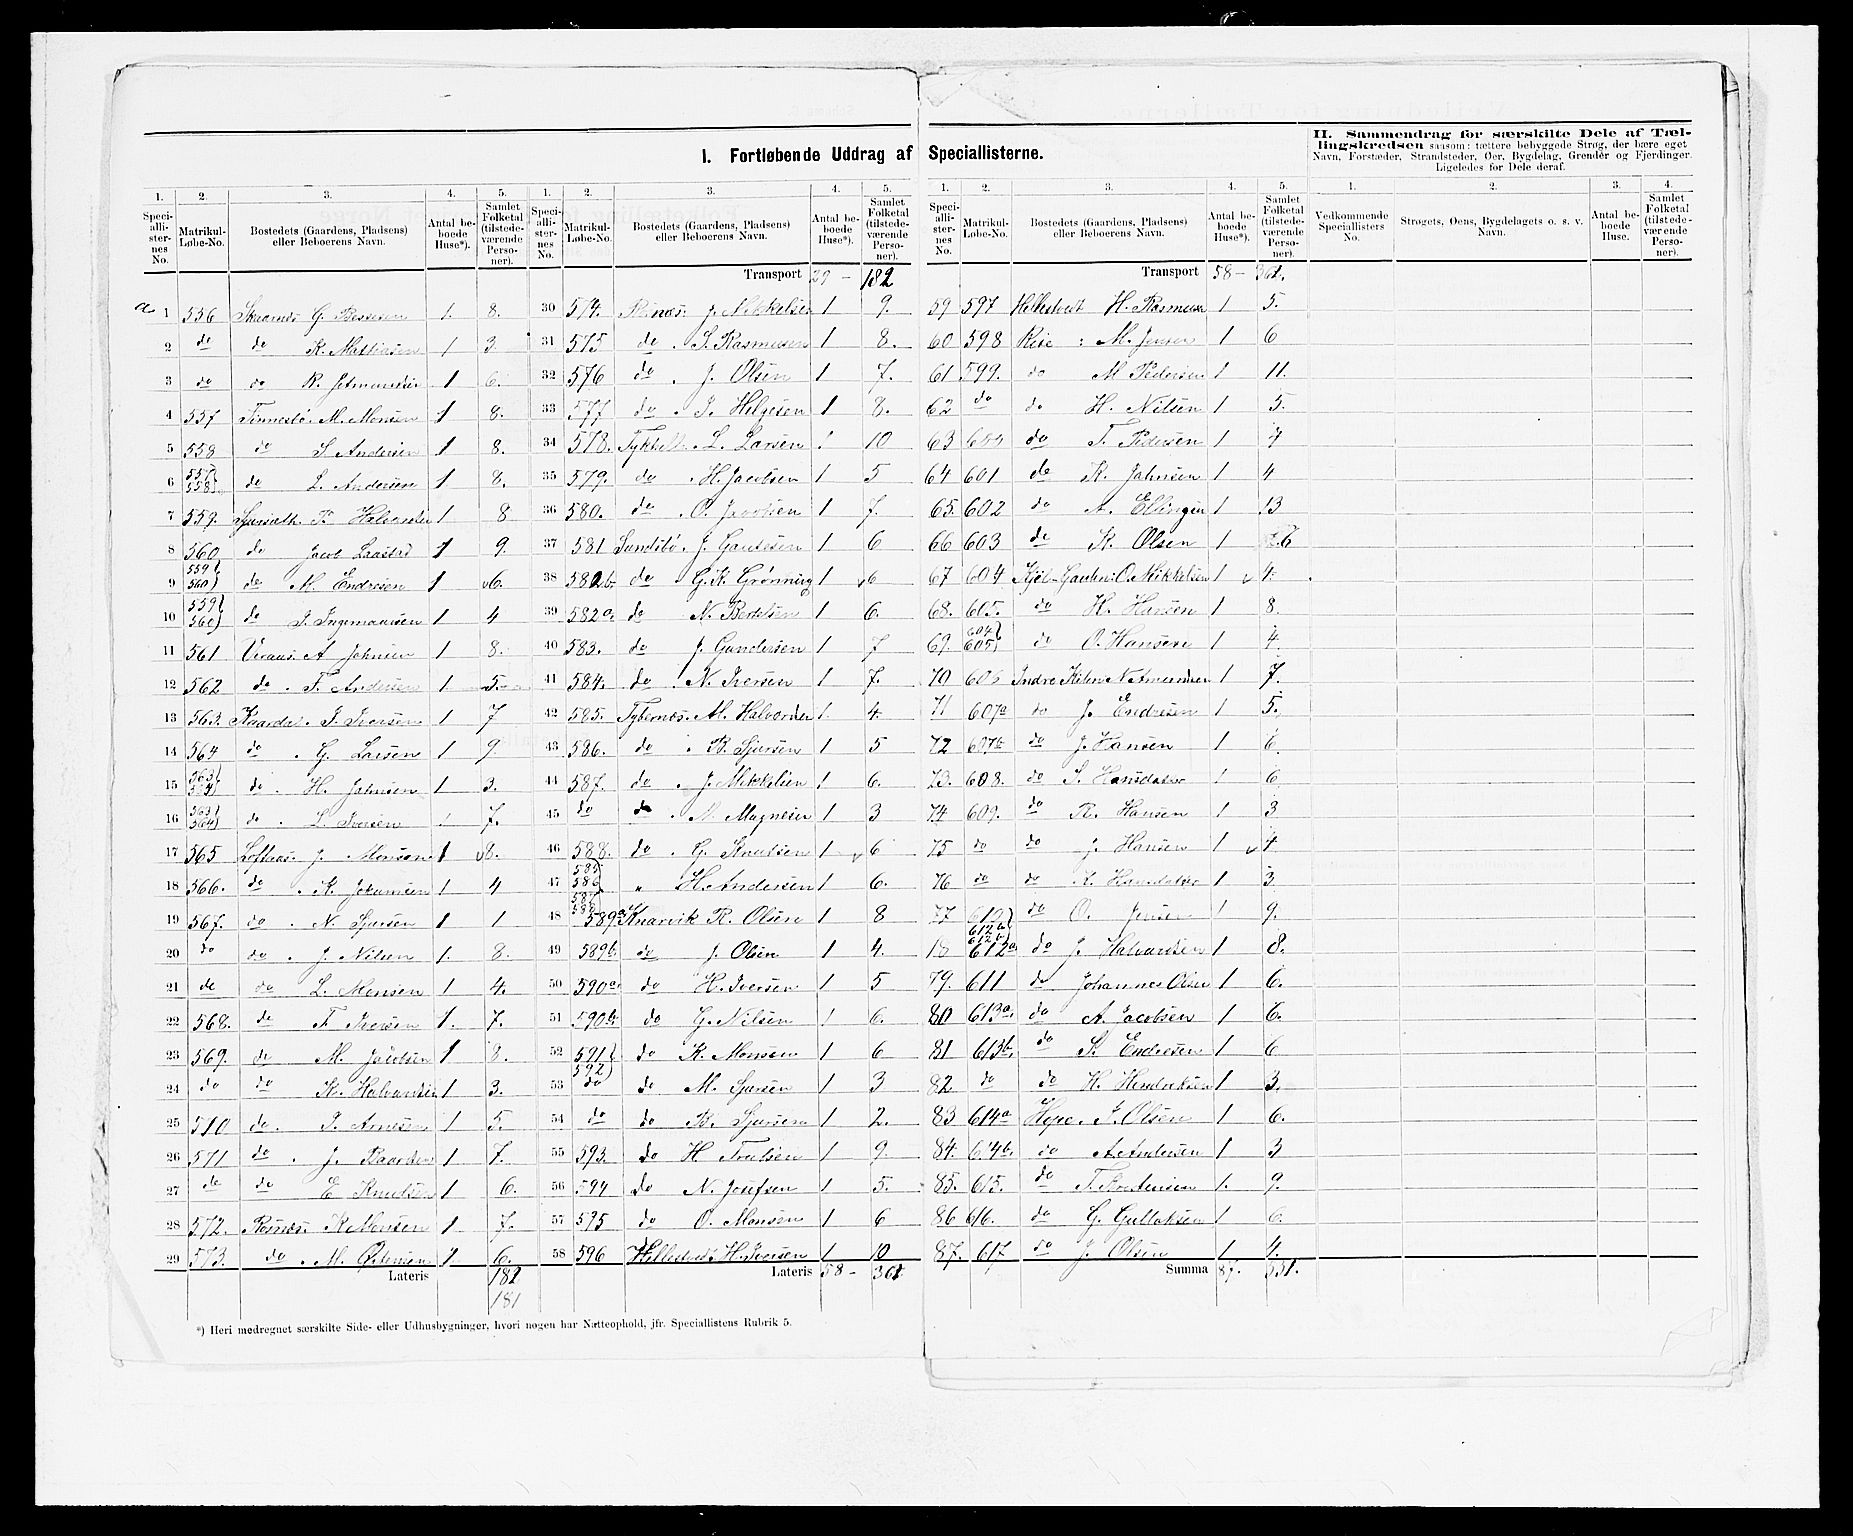 I. Fortløbende Uddrag af Speciallisterne.
II. Sammendrag for særskilte Dele af Tællingskredsen saasom: tættere bebyggede Strøg, der bære eget Navn, Forstæder, Strandsteder, Øer, Bygdelag, Grender og Fjerdinger. Ligeledes for Dele deraf.
1. 2. 3. 4. 5. 1. 2. 3. 4. 5. 1. 2. 3. 4. 5. 1. 2. 3. 4.
Speciallisternes No. Matrikul-Løbe-No. Bostedets (Gaardens, Pladsens) eller Beboerens Navn. Antal beboede Huse*). Samlet Folketal (tilstedeværende Personer).
Speciallisternes No. Matrikul-Løbe-No. Bostedets (Gaardens, Pladsens) eller Beboerens Navn. Antal beboede Huse*). Samlet Folketal (tilstedeværende Personer).
Speciallisternes No. Matrikul-Løbe-No. Bostedets (Gaardens, Pladsens) eller Beboerens Navn. Antal beboede Huse*). Samlet Folketal (tilstedeværende Personer).
Vedkommende Speciallisters No. Strøgets, Øens, Bygdelagets o. s. v. Navn. Antal beboede Huse. Samlet Folketal (tilstedeværende Personer).
1 556 G. 1. 8.
2 do do K. Mathiasen 1 3.
3 do do R. 1 6.
4 557 M. Monsen 1 8.
5 558 do S. Andersen 1 8.
6 557 558 do L. Andersen 1 8.
7 559. Halvorsen 1 8
8 560 do Jacob 1 9.
9 559 560 do M. Endresen 1 6.
10 559 560 do 1 4
11 561 A 1 8.
12 562 do. T. Andersen 1 5.
13 563. I. Iversen 1 7
14 564 do. G. Larsen 1 9.
15 do. H. Johnsen 1 3.
16 563 564 do. L. Iversen 1 7.
17 565 Loftaas. J. Monsen 1 8.
18 566. do. K. 1 4
19 567. do. N. Sjursen 1 1
20 do do. J. Nilsen 1. 8.
21 do do L. Monsen 1 4.
22 568. do T. Iversen 1. 7.
23 569. do M. Jacobsen 1 8.
24 do do K. 1 3.
25 do. I. Arnesen 1 5.
26 571 do. J. 1 7.
27 do do E Knutsen 1 6.
28 572. K. Monsen 1. 7.
29 573. do. M. 1. 6.
Lateris 182
181
Transport 29 - 182
30 574. J. Mikkelsen 1 9.
31 575 do. S. Rasmusen 1 8.
32 576 do. J. Olsen 1 7.
33 577 do. I. Helgesen 1 8.
34 578. L. Larsen 1 10
35 579. do. H. Jacobsen 1 5
36 580. do. O. Jacobsen 1 7.
37 581 Sundsbø. J. Gautesen 1 6
38 582b. do G. K. Grønning 1 6
39 582a. do N. Bertelsen 1 6.
40 583. do J. Gundersen 1 7
41 584. do. N. Iversen 1 7.
42 585. M. Halvorsen 1. 4.
43 586. do. B. Sjursen 1 5
44 587. do. J. Mikkelsen 1 6.
45 do do. N. Magnesen 1 3
46 588. do. G. Knutsen 1 6
47 585 586 587 588 " H. Andersen 1 6.
48 589a Knarvik R. Olsen 1 8
49 589b. do J. Olsen 1 4.
50 590a. do H. Iversen 1 5
51 590b. do G. Nilsen 1 6.
52 591 592 do K. Monsen 1 6
53 do do M. Sjursen 1 3
54 do do B. Sjursen 1 2.
55 593. do H. 1 9.
56 594 do N. Josefsen 1. 5.
57 595 do O. Monsen 1 6
58 596 H. Iversen 1 10
Lateris 58 - 361
Transport 58 - 361.
59 597 H. Rasmusen 1 5.
60 598 Rise : M. Jensen 1 6
61 599. do M. Pedersen 1 11.
62 do do H. Nilsen 1 5.
63 600 do T. Pedersen 1 7
64 601 do K. Johnsen 1 4
65. 602 do A. Ellingsen 1 13
66 603 do K. Olsen 1 6
67 604 O. Mikkelsen 1 4.
68. 605. do H. Hansen 1 8.
69. 604 605 do O. Hansen 1 4.
70 606 Indre Kilen N. Amundsen 1 7.
71 607a do J. Endresen 1 5.
72 607b do J. Hansen 1 6.
73. 608. do S. Hansdatter 1 6
74 609. do R. Hansen 1 3
75 do do J. Hansen 1 4
76 do do K. Hansdatter 1 3.
77 do O. Jensen 1 9.
78 612a do J. Halvorsen 1 8.
79. 611 do Johannes Olsen 1 6.
80 613a. do A. Jacobsen 1 6.
81 613b. do S. Endresen 1 6
82 do do H. Hendriksen 1 3.
83 614a I. Olsen 1 6.
84. 614b. do A. Andersen 1 3
85. 615. do T. Torstensen 1. 9.
86 616. do G. Gulloksen 1 6.
87. 617 do J. Olsen 1 4.
Summa 87. 531.
*) Heri medregnet særskilte Side- eller Udhusbygninger, hvori nogen har Natteophold, jfr. Speciallistens Rubrik 5.